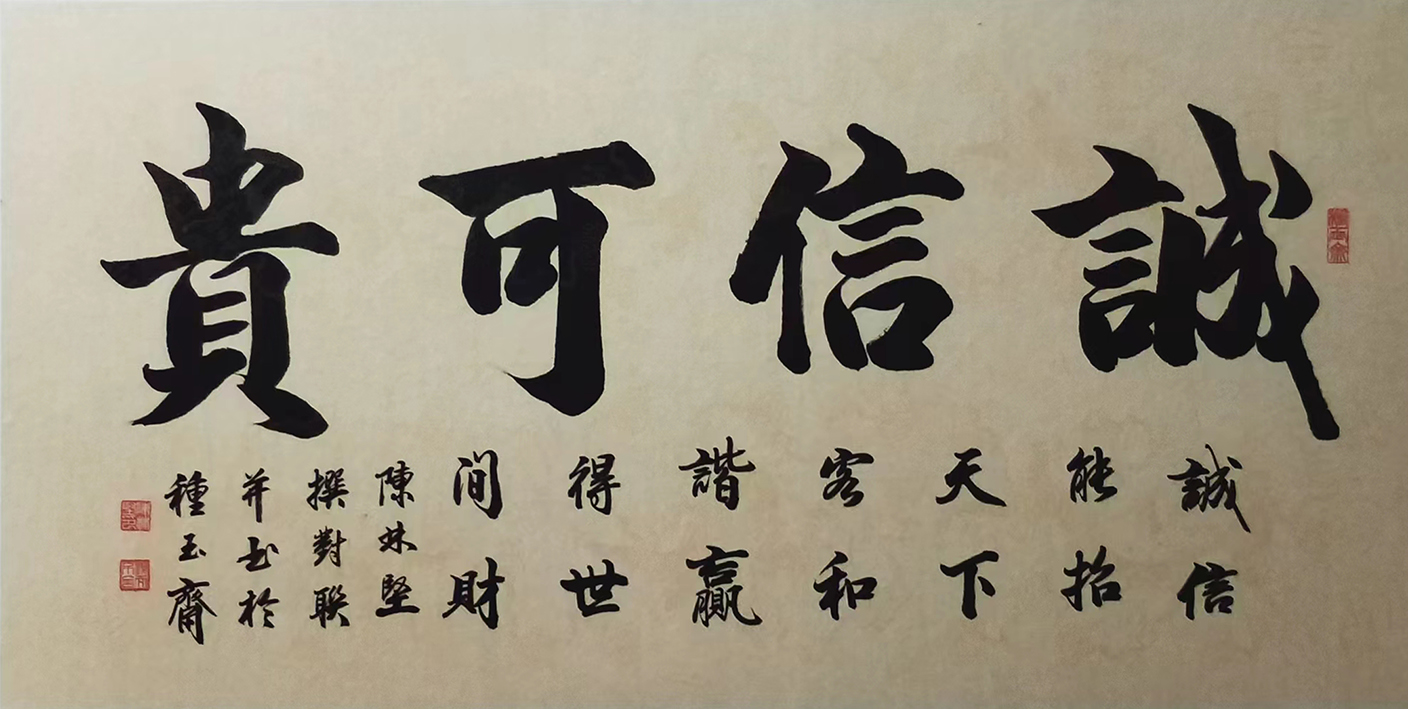 誠信可貴
誠信
能招
天下
客和
諧贏
得世
間財
陳 堅
撰對聯
并書於
種玉齋